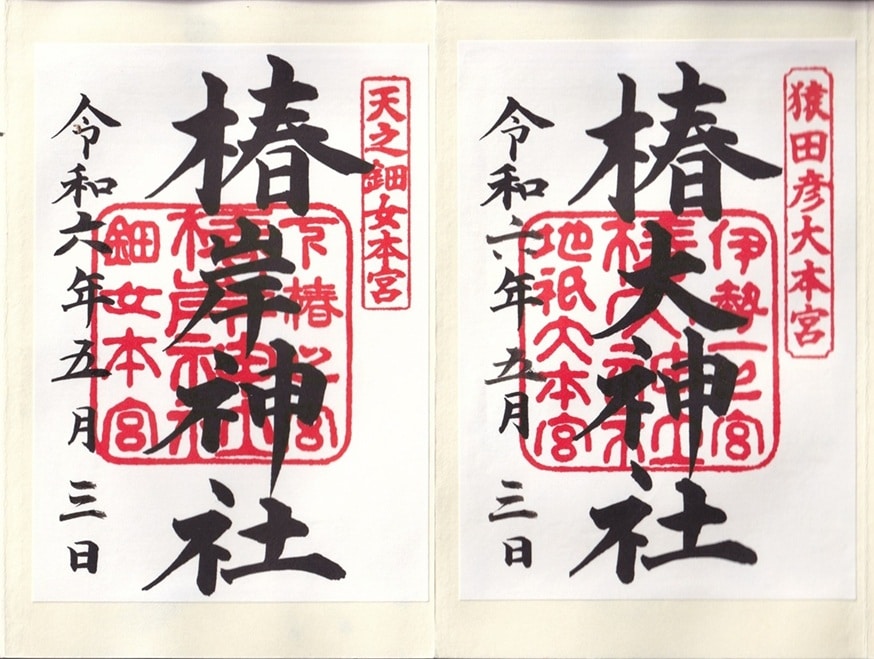 猿田彦大本宮
伊勢一之宮
椿大神社
地祇大本宮
令和六年五月三日
天之鈿女本宮
下椿之宮
椿岸神社
鈿女本宮
令和六年五月三日